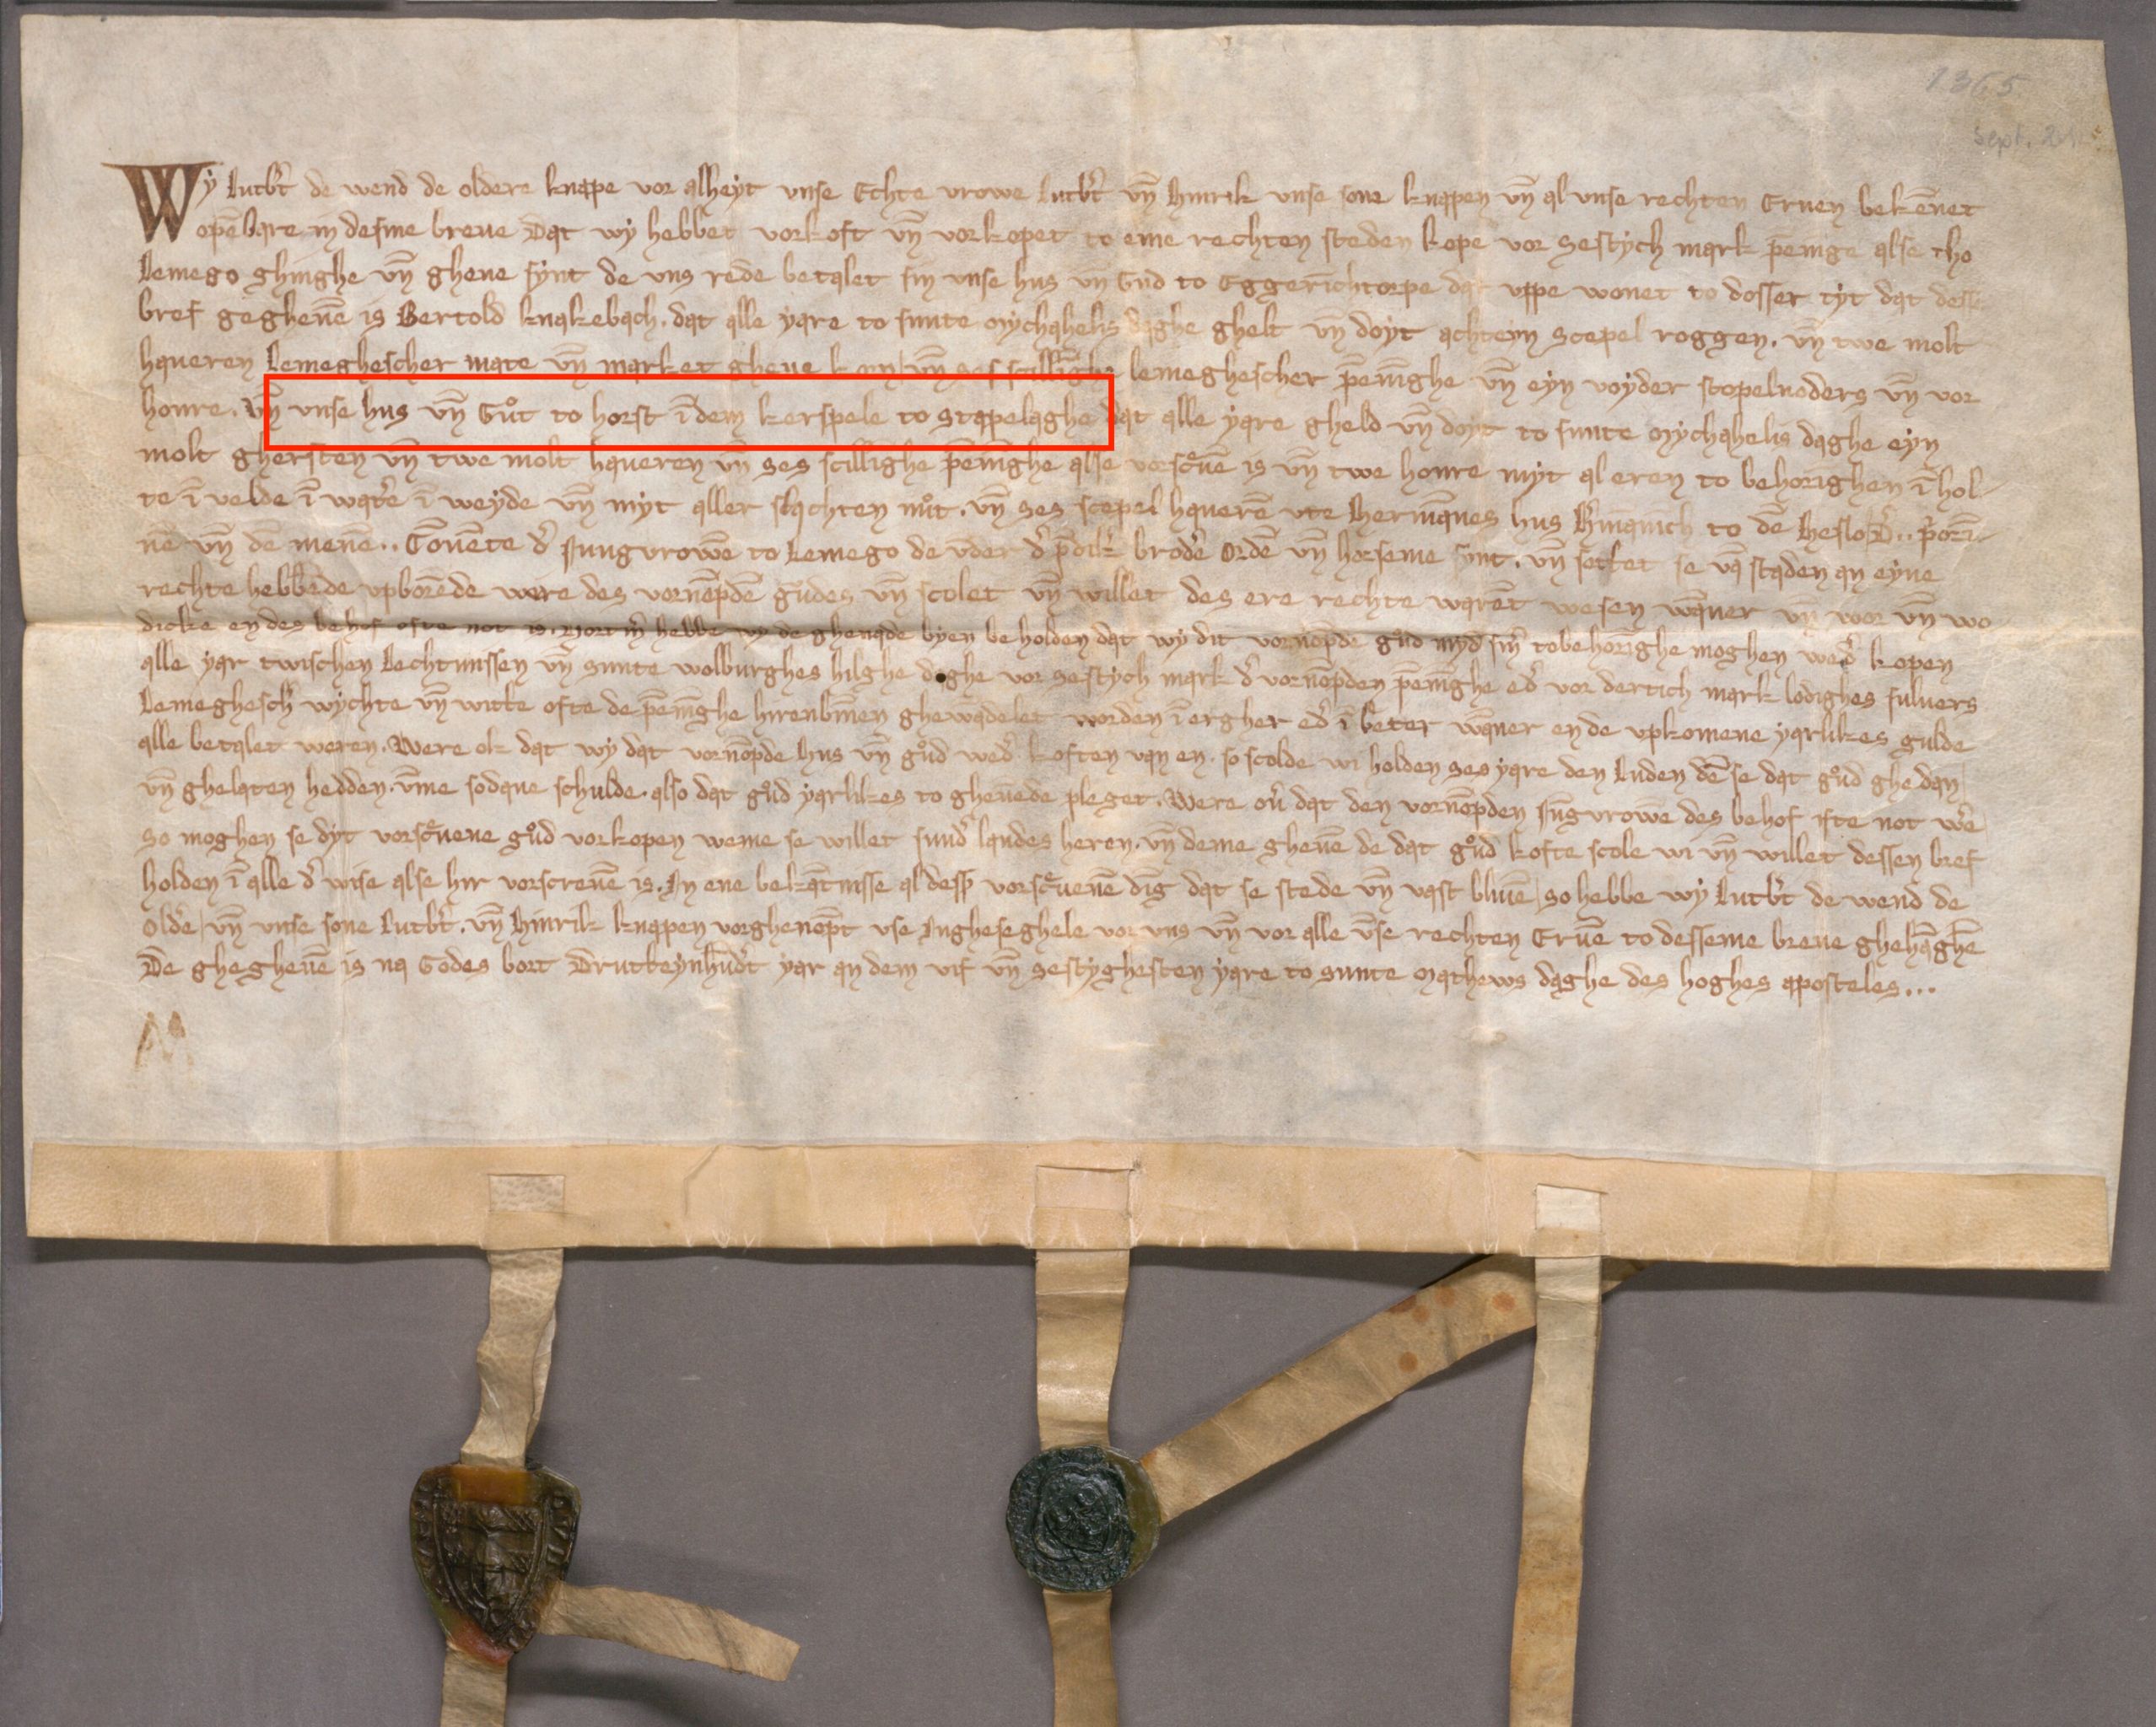 1365
Sept. 21
Wy lutb̕t de wend de oldere knape vor alheyt vnse Echte vrowe lutb̕t vn̄ Hinrik vnse sone knapen vn̄ al vnse rechten Eruen bekēnet
opēbare in desme breue Dat wy hebbet vorkoft vn̄ vorkopet to eme rechten steden kope vor Sestych mark pēnige alse tho
Lemego ghinghe vn̄ gheue synt de vns rede betalet sin vnse hus vn̄ Gůd to Eggerichtorpe dat vppe wonet to dosser tyt dat desse
bref gegheuē is Bertold knakebach. dat alle yare to sunte Mychahelis daghe ghelt vn̄ doyt achteyn Scepel roggen. vn̄ twe molt
haueren Lemeghescher mate vn̄ market gheue korn vn̄ Ses scillīghe lemeghescher pēnīghe vn̄ eyn voyder stopelvoders vn̄ vor
honre. vn̄ vnse hus vn̄ Gůt to horst ī dem kerspele to Stapelaghe dat alle yare gheld vn̄ doyt to sunte Mychahelis daghe eyn
molt ghersten vn̄ twe molt haueren vn̄ Ses scillīghe pēnīghe alse vorscͬuē is vn̄ twe honre myt al eren to behorighen ī hol-
te ī velde ī wat̕e ī weyde vn̄ myt aller slachten nůt. vn̄ Ses scepel hauerē vte Hermānes hus to dē Heslo D̕.. p̕ori-
nē vn̄ dē menē.. Cōuēte d̕ Jungvrowē to Lemego de vnder d̕ p̕dik̕ brod̕e Ordē vn̄ horseme synt. vn̄ settet se vā staden an eyne
rechte hebbēde vpborēde were des vornōpdē gůdes vn̄ scolet vn̄ willet des ere rechte warēt wesen wāner vn̄ wor vn̄ wo
dicke en des behof ofte not is. vortm̄ hebbe wy de ghenade hyen beholden dat wy dit vornōpde gůd myd sin̄ tobehorighe moghen wed̕ kopen
alle yar twischen Lechtmissen vn̄ Sunte wolburghes hilghe daghe vor Sestych mark d̕ vornōpden pēnīghe ed̕ vor dertich mark lodighes suluers
Lemeghesch̕ wychte vn̄ witte ofte de pēnīghe hirenbīnen ghewādelet worden ī ergher ed̕ ī beter wāner en de vpkomene yarlikes gulde
alle betalet weren. Were ok dat wy dat vornōpde hus vn̄ gůd wed̕ koften van en. so scolde wi holden Ses yare den Luden dē se dat gůd ghedan
vn̄ ghelaten hedden. vm̄e sodane schulde. also dat gůd yarlikes to gheuēde pleget. Were ou̕ dat den vornōpden Jūgvrowē des behof ifte not we̕re
So moghen se dyt vorscͬuene gůd vorkopen weme se willet sund̕ landes heren. vn̄ deme gheuē de dat gůd kofte scole wi vn̄ willet dessen bref
holden ī alle d̕ wise alse hir vorscreuē is. In ene bekātnisse al dess̕ vorscͬuenē dīg dat se stede vn̄ vast bliuē so hebbe wy Lutb̕t de wend de
Olde̕ vn̄ vnse sone Lutb̕t. vn̄ Hinrik knapen vorghenōpt vse Ingheseghele vor vns vn̄ vor alle vn̄se rechten Eruē to desseme breue ghehāghē
De ghegheuē is na Godes bort Drutteynhūd̕t yar an dem vif vn̄ Sestyghesten yare to Sunte Mathews daghe des hoghes aposteles...